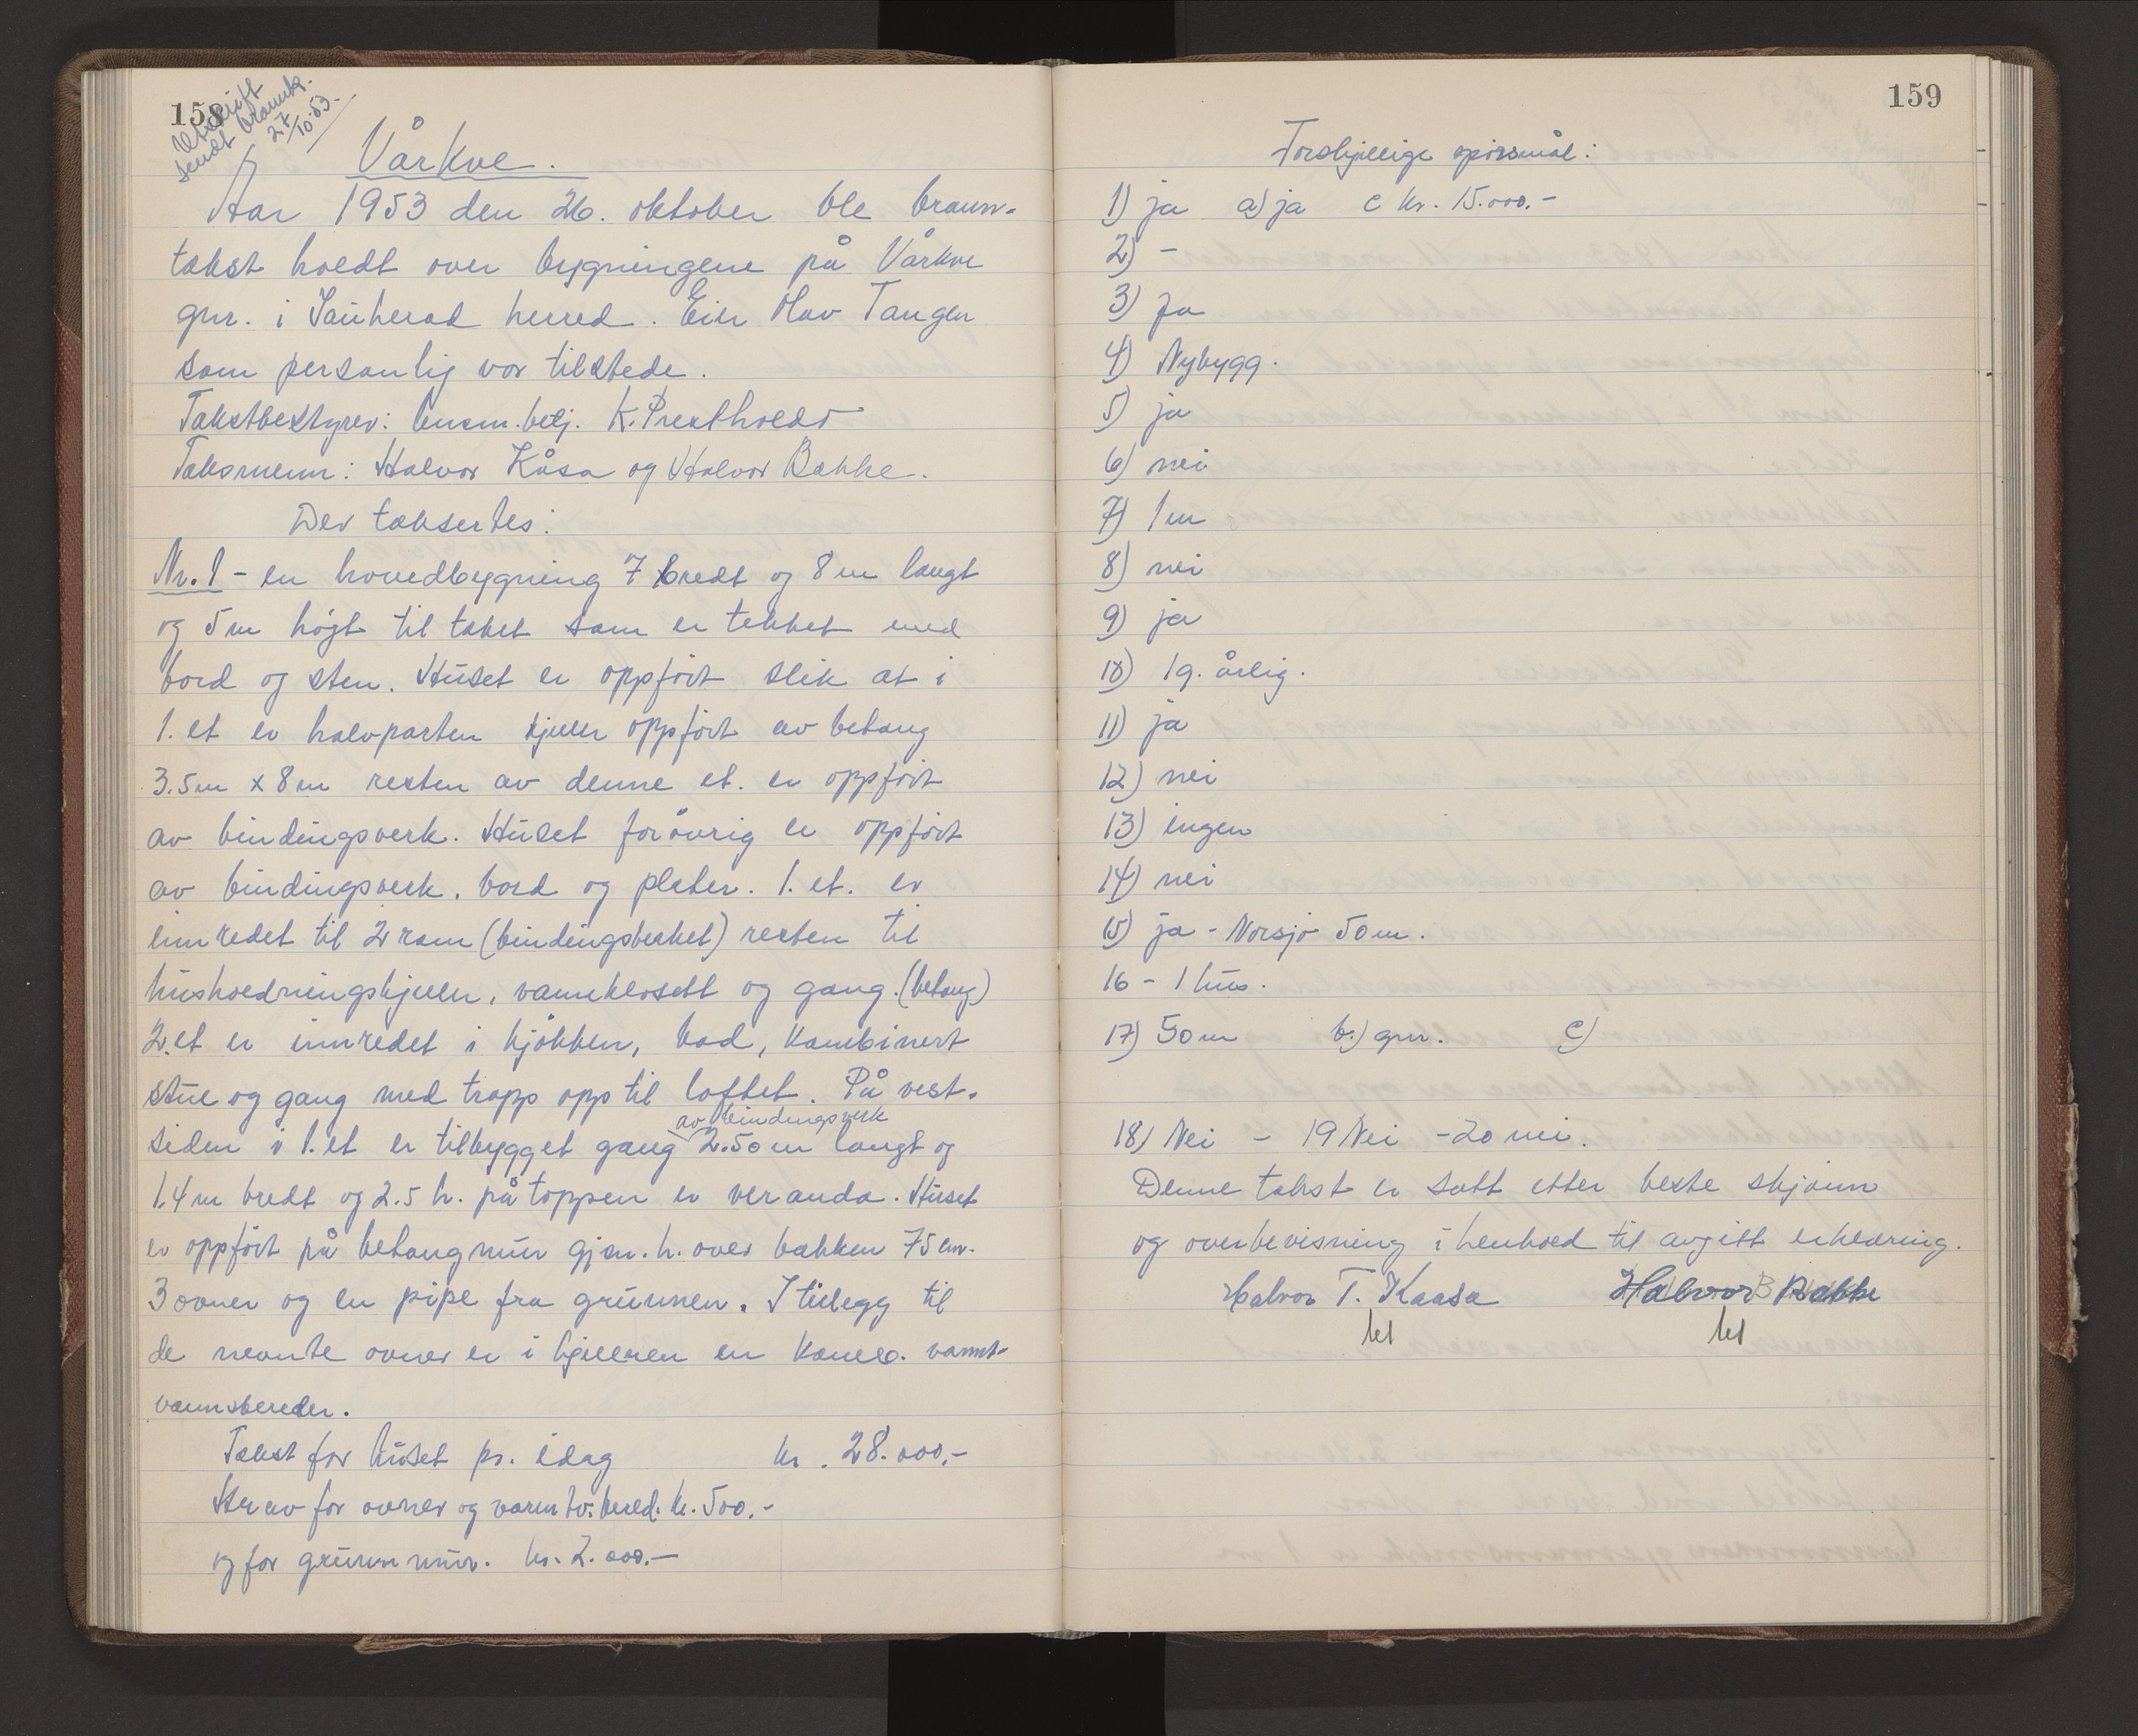 158
Utskrift
sendt Brannk.
27/10-53.
Vårkve.
Aar 1953 den 26. oktober ble brann-
takst holdt over bygningene på Vårkve
gnr. i Sauherad herred. Eier Olav Tangen
som personlig var tilstede.
Takstbestyrer: lensm.betj. K. Prestholdt
Taksmenn: Halvor Kåsa og Halvor Bakke.
Der taksertes:
Nr. 1 - en hovedbygning 7 bredt og 8 m langt
og 5 m högt til taket som er tekket med
bord og sten. Huset er oppfört slik at i
1. et er halvparten kjeller oppfört av betong
3.5 m x 8 m resten av denne et. er oppfört
av bindingsverk. Huset forövrig er oppfört
av bindingsverk, bord og plater. 1. et. er
innredet til 2 rom (bindingsverket) resten til
husholdningskjeller, vannklosett og gang. (betong)
2. et er innredet i kjökken, bad, kombinert
stue og gang med trapp opp til loftet. På vest-
siden i 1. et er tilbygget gang av bindingsverk 2.50 m langt og
1.4 m bredt og 2.5 h. på toppen er veranda. Huset
er oppfört på betongmur gjen. h. over bakken 75 cm.
3 ovner og en pipe fra grunnen. I tillegg til
de nevnte ovner er i kjelleren en varmt-
vannsbereder.
Takst for huset pr. idag kr. 28.000,-
Herav for ovner og varmtv. bered. kr. 500.-
og for grunnmur. kr. 2.000.-
159
Forskjellige spörsmål:
1) ja a) ja c kr. 15.000.-
2) -
3) ja
4) Nybygg.
5) ja
6) nei
7) 1 m
8) nei
9) ja
10) 1 g. årlig.
11) ja
12) nei
13) ingen
14) nei
15) ja - Norsjö 50 m.
16 - 1 hus.
17) 50 m b.) gnr. c)
18) Nei - 19 Nei - 20 nei.
Denne takst er satt etter beste skjönn
og overbevisning i henhold til avgitt erklæring.
Halvor T. Kaasa Halvor Bakke